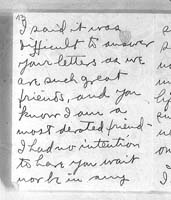 I said it was
difficult to answer
your letters as we
are such great
friends, and you
know I am a
most devoted friend-
I had no intention
to have you wait
nor be in any